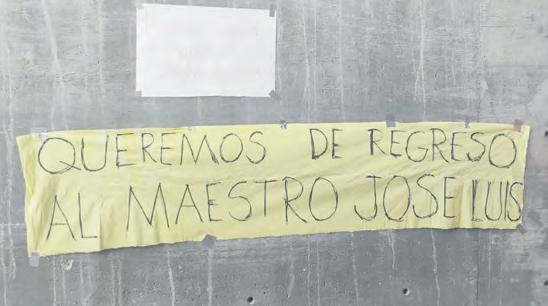 QUEREMOS DE REGRESO
AL MAESTRO JOSE LUIS